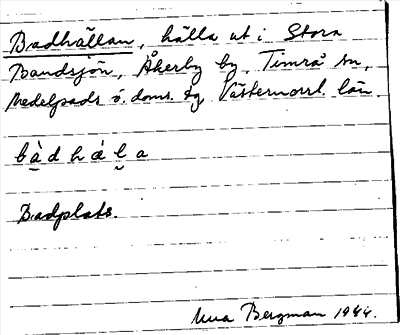 Badhällan, hälla ut i Stora
Bandsjön, Åkerby by, Timrå sn,
Medelpads ö. doms. tg Västernorrl. län.
bàdhäḷa
Badplats.
Bergman 1944.